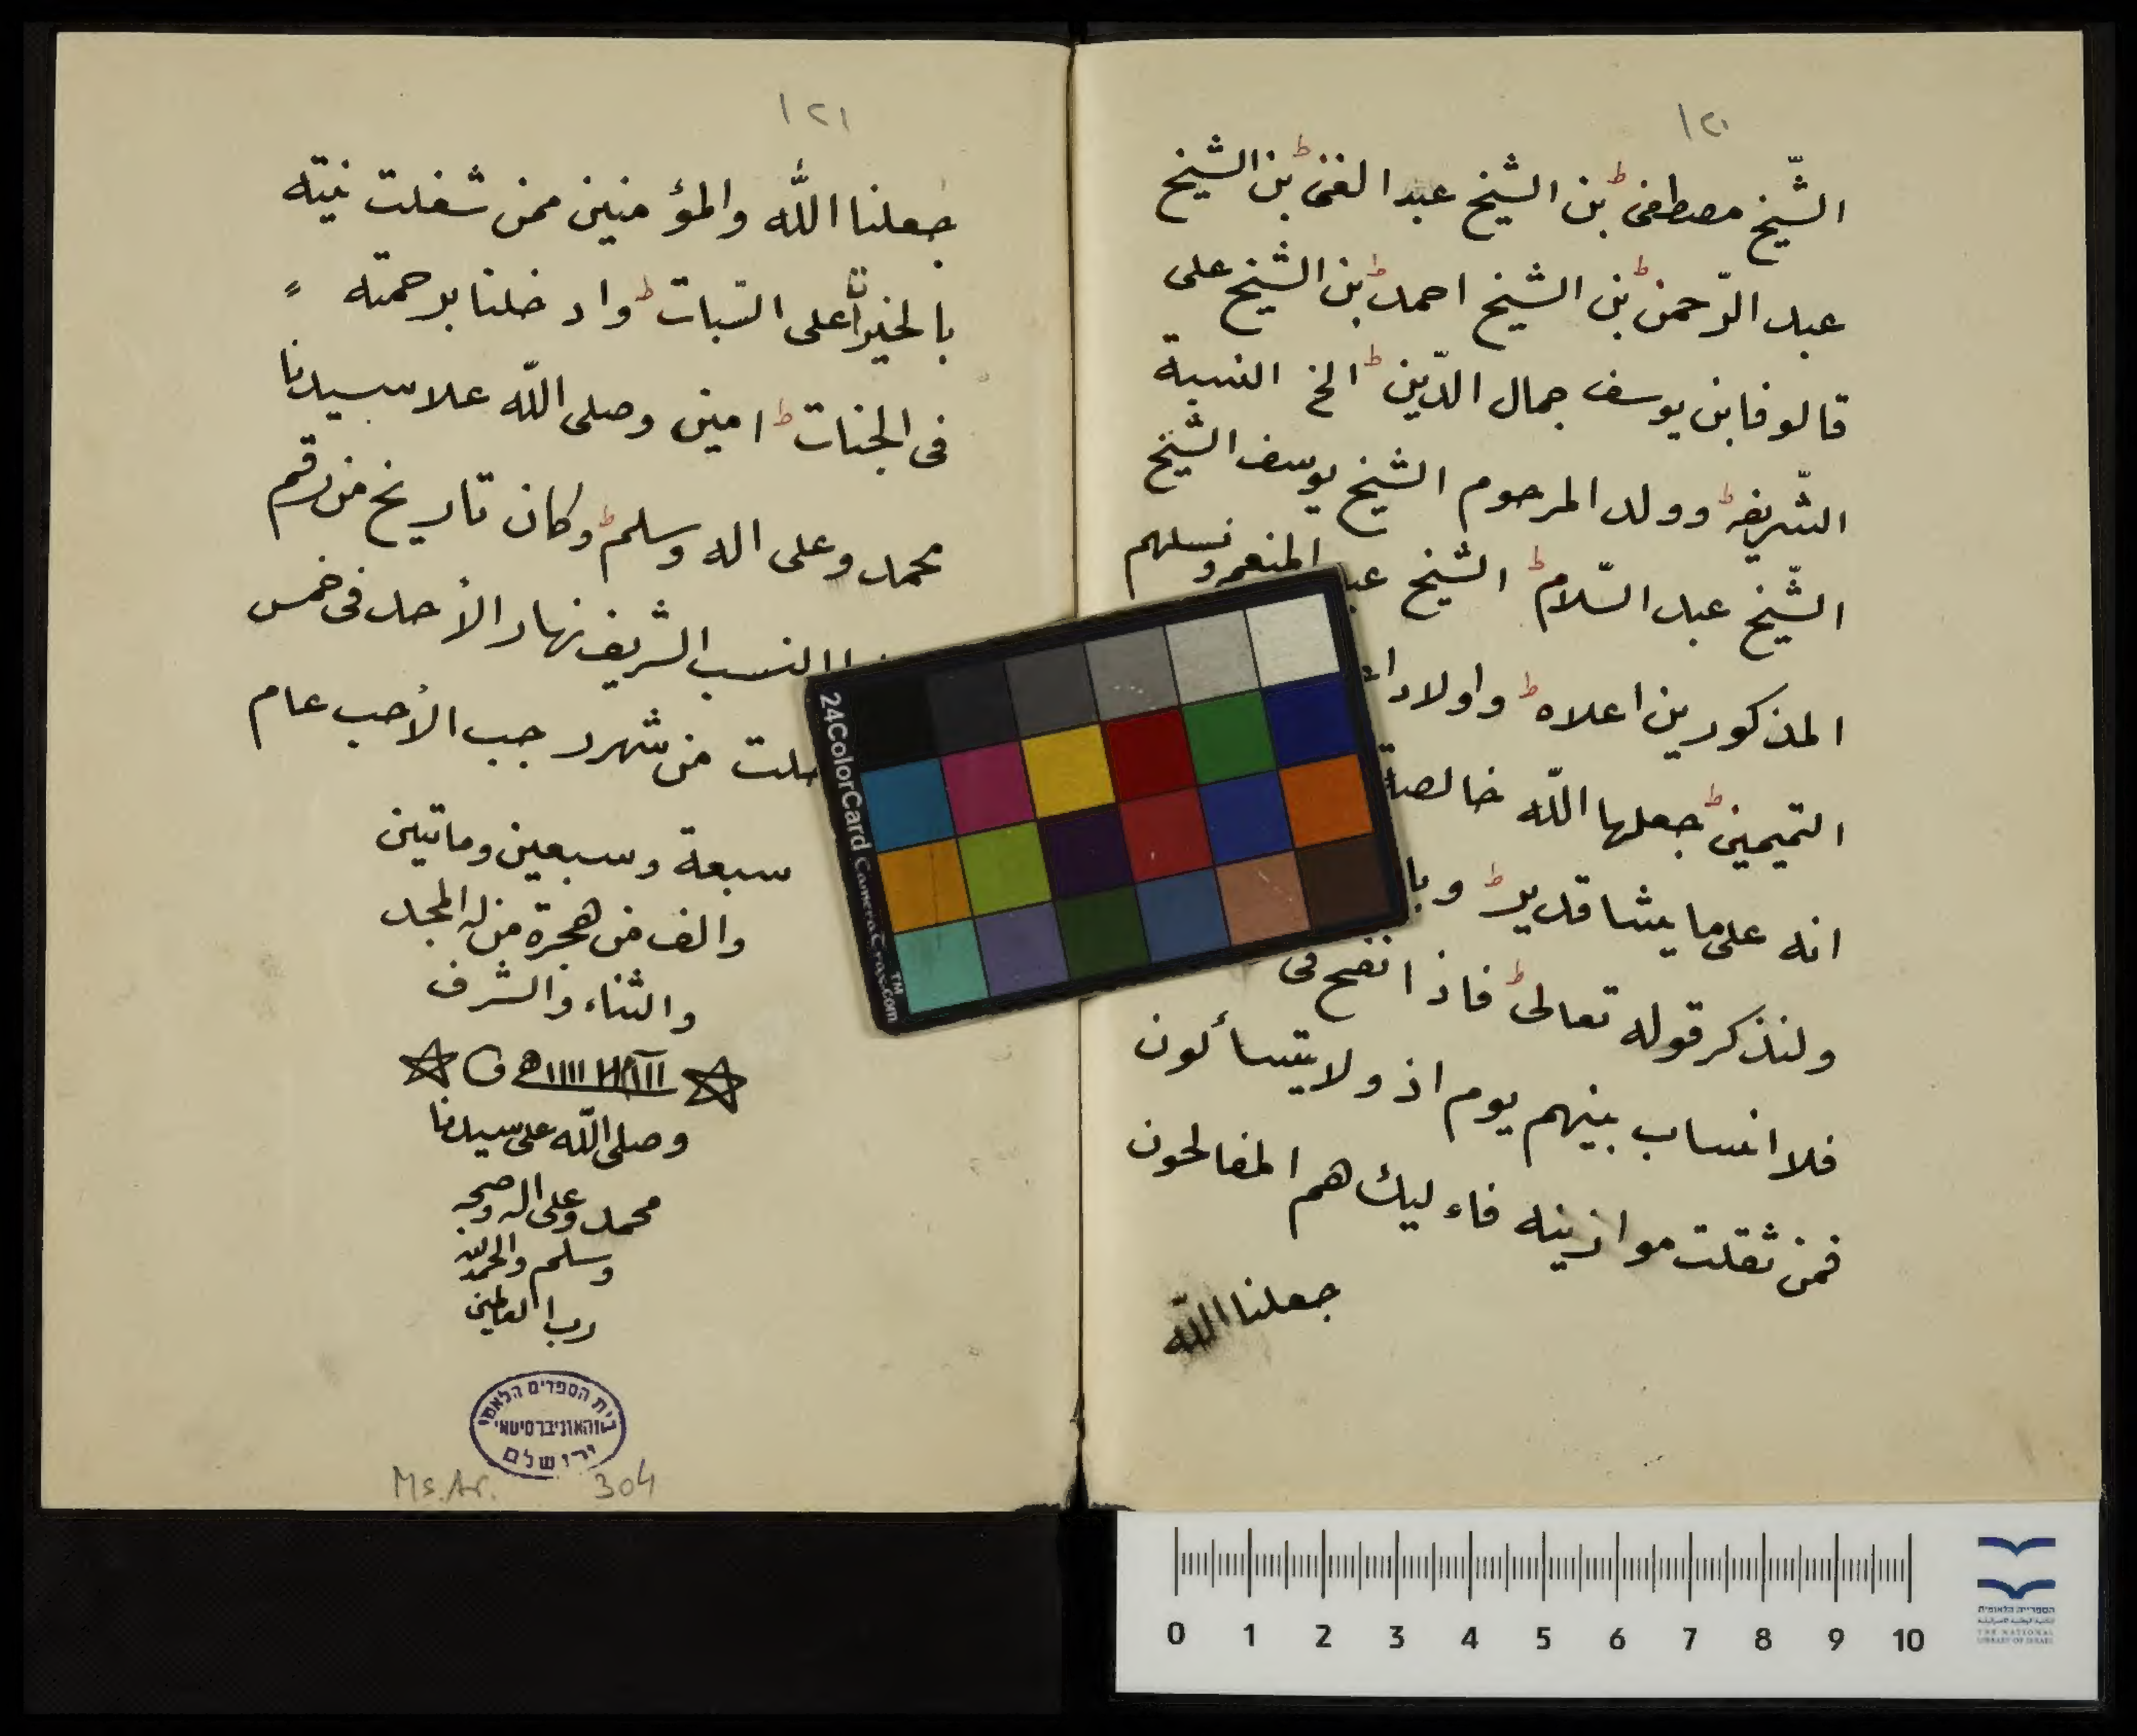 ١٢٠
الشّيخ مصطفىٰ ط بن الشيخ عبد الغنى ط بن الشيخ
عبد الرّحمن ط بن الشيخ احمد ط بن الشيخ على
قالوفابن يوسف جمال الدّين ط الخ النسبة
الشّريفه ط وولد المرحوم الشيخ يوسف الشيخ
الشّيخ عبد السّلام ط الشيخ عبد المنعم ونسلهم
المذكورين اعلاه ط واولاد
التميمين ط جعلها اللّه خالصة
انه على ما يشا قدير ط وبا
ولنذكر قوله تعالى ط فاذا نفح فى
فلا انساب بينهم يوم اذ ولا يتسألون
فمن ثقلت موازينه فاءليك هم المفالحون
جعلنا اللّه
١٢١
جعلنا اللّه والمؤمنين ممن شغلت نيته
بالخيرات على الثبات ط وادخلنا برحمته
فى الجنات ط امين وصلى اللّه علا سيدنا
محمد وعلى اله وسلم ط وكان تاريخ من رقم
النسب الشريف نهار الأحد فى خمس
خلت من شهر رجب الأحب عام
سبعة وسبعين وماتين
والف من هجرة من له المجد
والثناء والشرف
وصلى اللّه على سيدنا
محمد وعلى اله وصحبه
وسلم والحمد لله
رب العالمين
בית הספרים הלאומי
והאוניברסיטאי
ירושלם
Ms. Ar. 304
24ColorCard CameraTrax.com™
0 1 2 3 4 5 6 7 8 9 10
הספרייה הלאומית
THE NATIONAL
LIBRARY OF ISRAEL